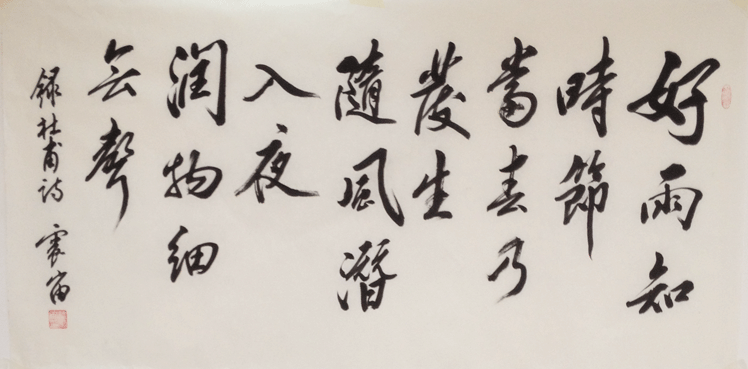 好雨知
時節
當春乃
發生
隨風潛
入夜
潤物細
無聲
錄杜甫詩
震宙